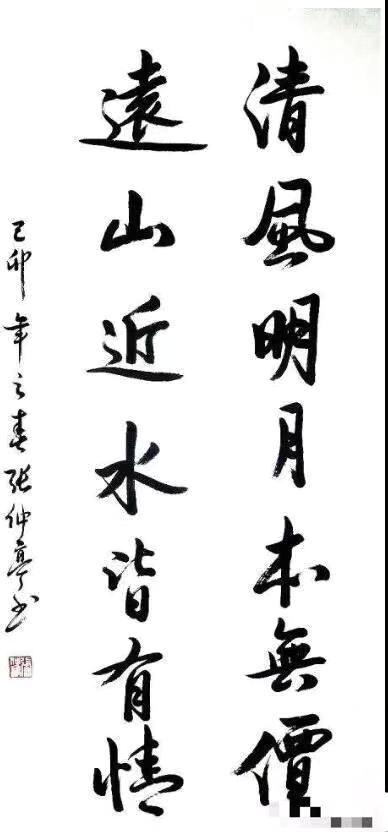 清風明月本無價
遠山近水皆有情
己卯年之春張仲亭书